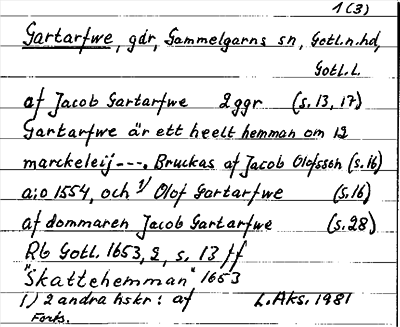 1(3)
Gartarfwe, gdr, Gammelgarns sn, Gotl.n.hd,
Gotl.l.
af Jacob Gartarfwe 2ggr (s.13, 17)
Gartarfwe är ett heelt hemman om 12
marckeleij---. Bruckas af Jacob Olofsson (s.16)
a:o 1554, och 1/ Olof Gartarfwe (s.16)
af dommaren Jacob Gartarfwe (s.28)
Rb Gotl. 1653, 2, s. 13 ff
"Skattehemman" 1653
1) 2 andra hskr: af L.Aks. 1981
Forts.